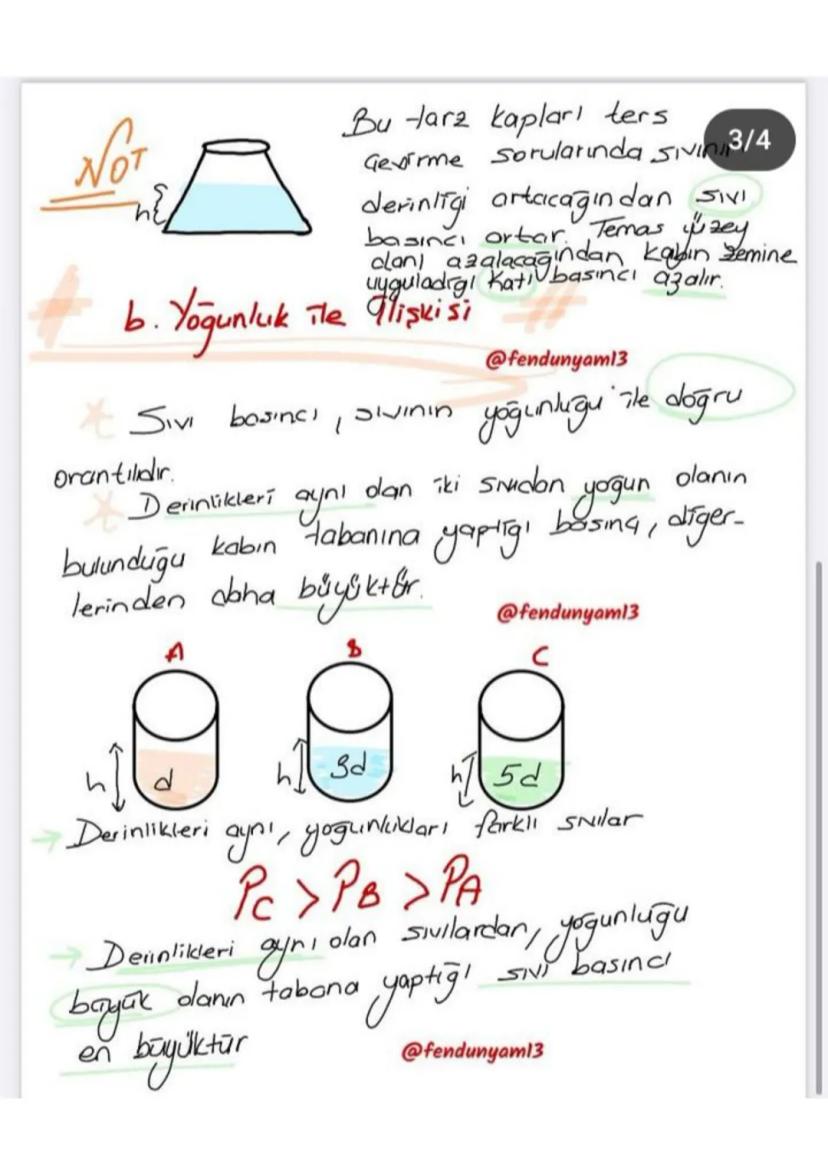 3/4
NOT
Bu tarz kapları ters
çevirme sorularında sıvının
derinliği artacağından sıvı
basıncı artar. Temas yüzey
alanı azalacağından kabın zemine
uyguladığı katı basıncı azalır.
h
b. Yoğunluk ile İlişkisi
@fendunyam13
Sıvı basıncı, sıvının yoğunluğu ile doğru
orantılıdır.
Derinlikleri aynı olan iki sıvıdan yoğun olanın
bulunduğu kabın tabanına yaptığı basınç, diğer-
lerinden daha büyüktür.
@fendunyam13
A B C
h d h 3d h 5d
→ Derinlikleri aynı, yoğunlukları farklı sıvılar
PC > PB > PA
→ Derinlikleri aynı olan sıvılardan, yoğunluğu
büyük olanın tabana yaptığı sıvı basıncı
en büyüktür
@fendunyam13